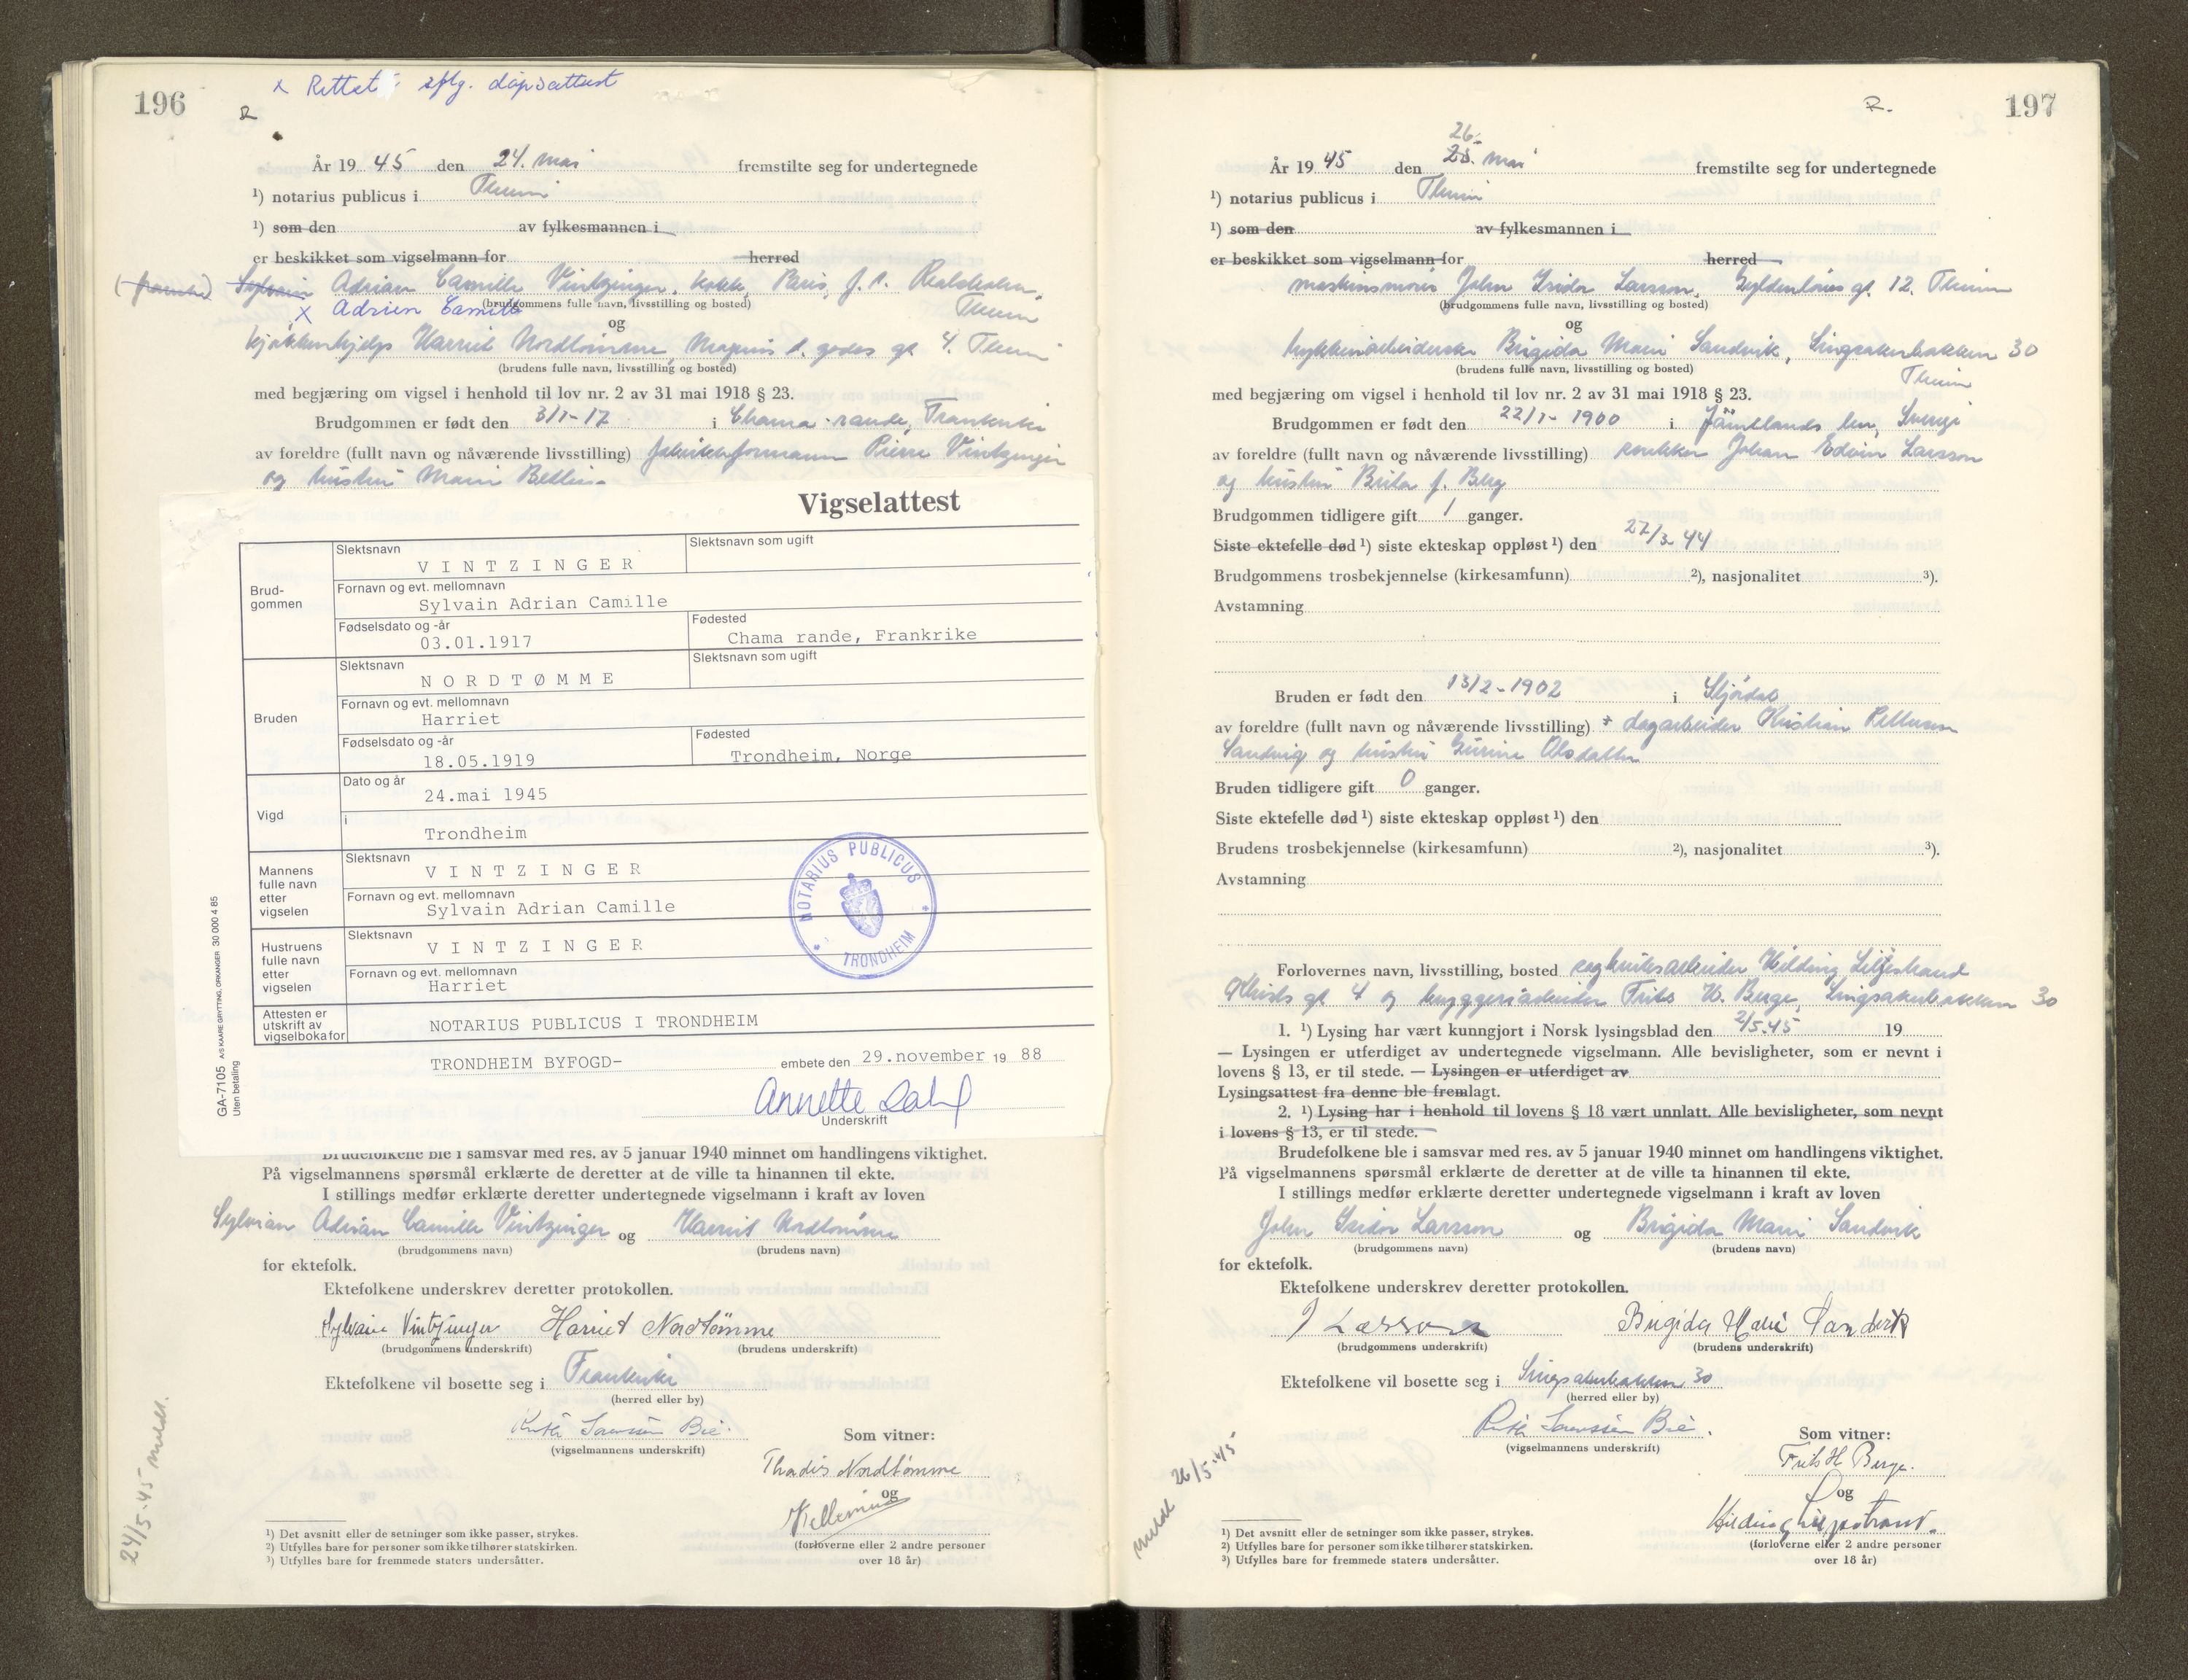 x Rettet iflg. dåpsattest
196
År 19 45 den 24. mai fremstilte seg for undertegnede
¹) notarius publicus i
¹) som den av fylkesmannen i
er beskikket som vigselmann for herred
Sylvain Adrian Camille Vintzinger, kokk, Paris,
(brudgommens fulle navn, livsstilling og bosted)
x Adrien Camille
og
kjøkkenhjelp Harriet Nordtömme, Magnus d. godes gt 4.
(brudens fulle navn, livsstilling og bosted)
med begjæring om vigsel i henhold til lov nr. 2 av 31 mai 1918 § 23.
Brudgommen er født den 3/1-17 i Chama rande, Frankrike
av foreldre (fullt navn og nåværende livsstilling) Pierre Vintzinger
og hustru Marie
Vigselattest
Brud-
gommen
Slektsnavn
VINTZINGER
Slektsnavn som ugift
Fornavn og evt. mellomnavn
Sylvain Adrian Camille
Fødselsdato og -år
03.01.1917
Fødested
Chama rande, Frankrike
Bruden
Slektsnavn
NORDTØMME
Slektsnavn som ugift
Fornavn og evt. mellomnavn
Harriet
Fødselsdato og -år
18.05.1919
Fødested
Trondheim, Norge
Vigd
Dato og år
24.mai 1945
i
Trondheim
Mannens
fulle navn
etter
vigselen
Slektsnavn
VINTZINGER
Fornavn og evt. mellomnavn
Sylvain Adrian Camille
Hustruens
fulle navn
etter
vigselen
Slektsnavn
VINTZINGER
Fornavn og evt. mellomnavn
Harriet
NOTARIUS PUBLICUS
TRONDHEIM
Attesten er
utskrift av
vigselboka for
NOTARIUS PUBLICUS I TRONDHEIM
TRONDHEIM BYFOGD- embete den 29.november 19 88
Annette Dahl
Underskrift
GA-7105 A/S KAARE GRYTTING, ORKANGER 30 000 4 85
Uten betaling
Brudefolkene ble i samsvar med res. av 5 januar 1940 minnet om handlingens viktighet.
På vigselmannens spørsmål erklærte de deretter at de ville ta hinannen til ekte.
I stillings medfør erklærte deretter undertegnede vigselmann i kraft av loven
Sylvian Adrian Camille Vintzinger og Harriet Nordtömme
(brudgommens navn) (brudens navn)
for ektefolk.
Ektefolkene underskrev deretter protokollen.
Sylvain Vintzinger Harriet Nordtömme
(brudgommens underskrift) (brudens underskrift)
Ektefolkene vil bosette seg i Frankrike
(herred eller by)
(vigselmannens underskrift)
Som vitner:
Thordis Nordtömme
og
(forloverne eller 2 andre personer
over 18 år)
24/5-45 meldt.
¹) Det avsnitt eller de setninger som ikke passer, strykes.
²) Utfylles bare for personer som ikke tilhører statskirken.
³) Utfylles bare for fremmede staters undersåtter.
R. 197
26.
År 19 45 den 25. mai fremstilte seg for undertegnede
¹) notarius publicus i
¹) som den av fylkesmannen i
er beskikket som vigselmann for herred
John Isidor Larsson, Gyldenløves gt. 12.
(brudgommens fulle navn, livsstilling og bosted)
og
Brigida Marie Sandvik, Singsakerbakken 30
(brudens fulle navn, livsstilling og bosted)
med begjæring om vigsel i henhold til lov nr. 2 av 31 mai 1918 § 23.
Brudgommen er født den 22/1-1900 i Jämtlands len, Sverige
av foreldre (fullt navn og nåværende livsstilling) snekker Johan Edvin Larsson
og hustru Brita f. Berg
Brudgommen tidligere gift 1 ganger.
Siste ektefelle død ¹) siste ekteskap oppløst ¹) den 27/3-44
Brudgommens trosbekjennelse (kirkesamfunn) ²), nasjonalitet ³).
Avstamning
Bruden er født den 13/2-1902 i Stjørdal
av foreldre (fullt navn og nåværende livsstilling) + dagarbeider Kristian Pettersen
Sandvig og hustru Gurine Olsdatter
Bruden tidligere gift 0 ganger.
Siste ektefelle død ¹) siste ekteskap oppløst ¹) den
Brudens trosbekjennelse (kirkesamfunn) ²), nasjonalitet ³).
Avstamning
Forlovernes navn, livsstilling, bosted sagbruksarbeider Hilding Liljestrand
gt 4 og bryggeriarbeider Frits H. Berge, Singsakerbakken 30
1. ¹) Lysing har vært kunngjort i Norsk lysingsblad den 2/5.45 19
— Lysingen er utferdiget av undertegnede vigselmann. Alle bevisligheter, som er nevnt i
lovens § 13, er til stede. — Lysingen er utferdiget av
Lysingsattest fra denne ble fremlagt.
2. ¹) Lysing har i henhold til lovens § 18 vært unnlatt. Alle bevisligheter, som nevnt
i lovens § 13, er til stede.
Brudefolkene ble i samsvar med res. av 5 januar 1940 minnet om handlingens viktighet.
På vigselmannens spørsmål erklærte de deretter at de ville ta hinannen til ekte.
I stillings medfør erklærte deretter undertegnede vigselmann i kraft av loven
John Isidor Larsson og Brigida Marie Sandvik
(brudgommens navn) (brudens navn)
for ektefolk.
Ektefolkene underskrev deretter protokollen.
J Larsson Brigida Marie Sandvik
(brudgommens underskrift) (brudens underskrift)
Ektefolkene vil bosette seg i Singsakerbakken 30
(herred eller by)
(vigselmannens underskrift)
Som vitner:
Frits H Berge.
og
Hilding Liljestrand.
(forloverne eller 2 andre personer
over 18 år)
meldt 26/5-45
¹) Det avsnitt eller de setninger som ikke passer, strykes.
²) Utfylles bare for personer som ikke tilhører statskirken.
³) Utfylles bare for fremmede staters undersåtter.